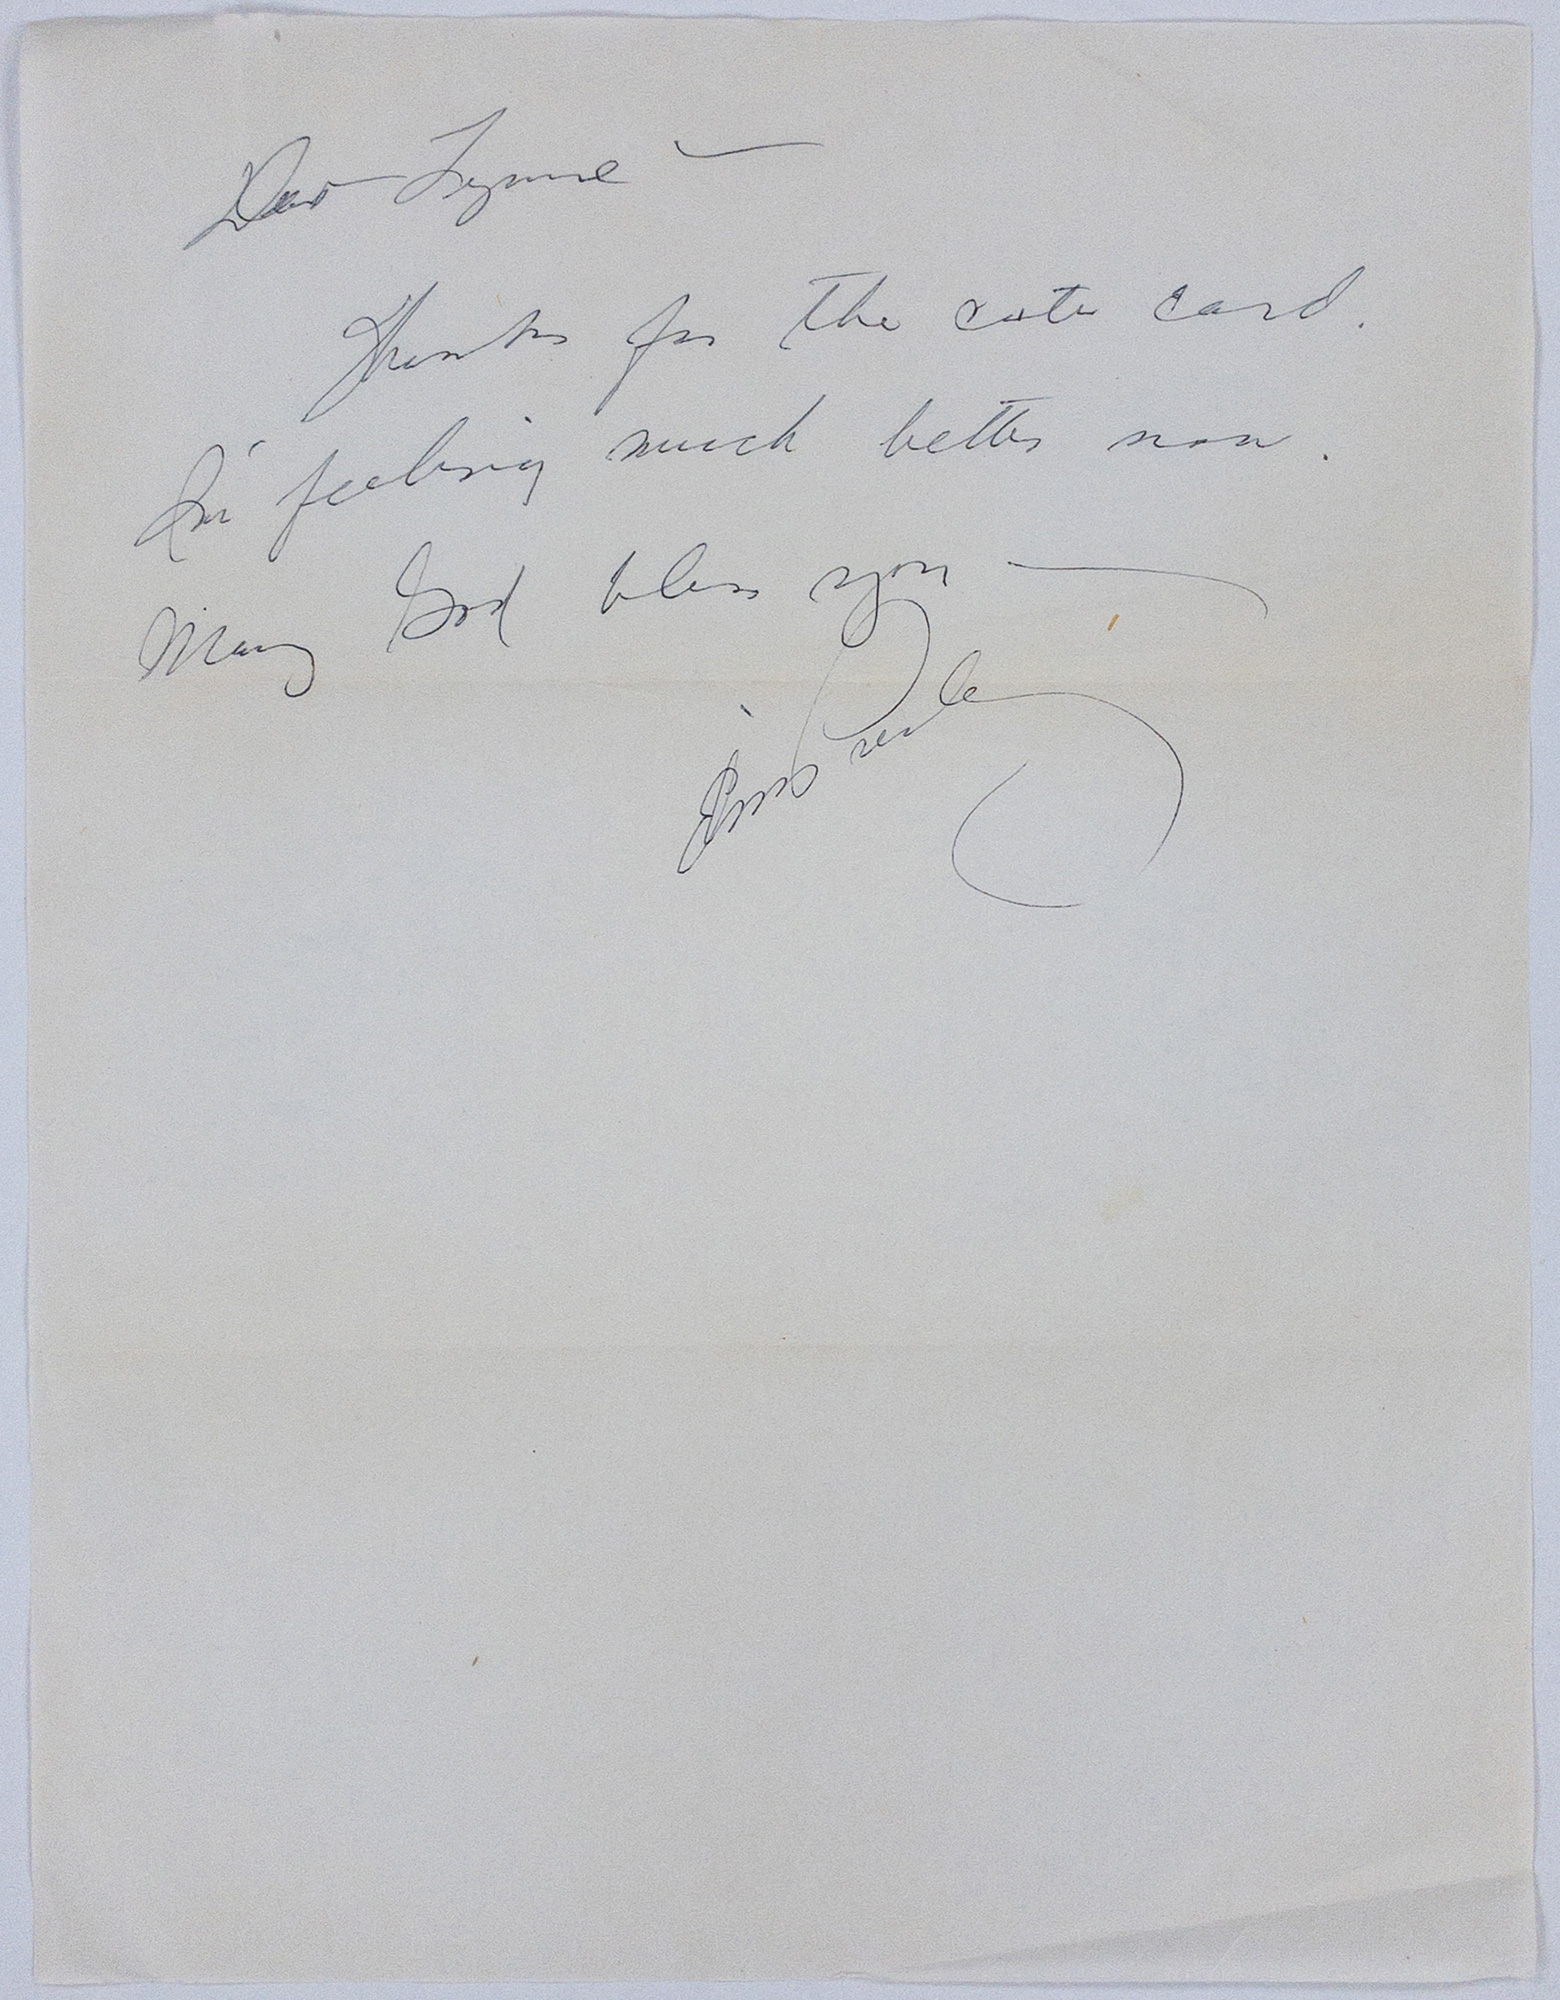 Dear Lynne —
Thanks for the cute card.
I'm feeling much better now.
May God bless you —
Elvis Presley